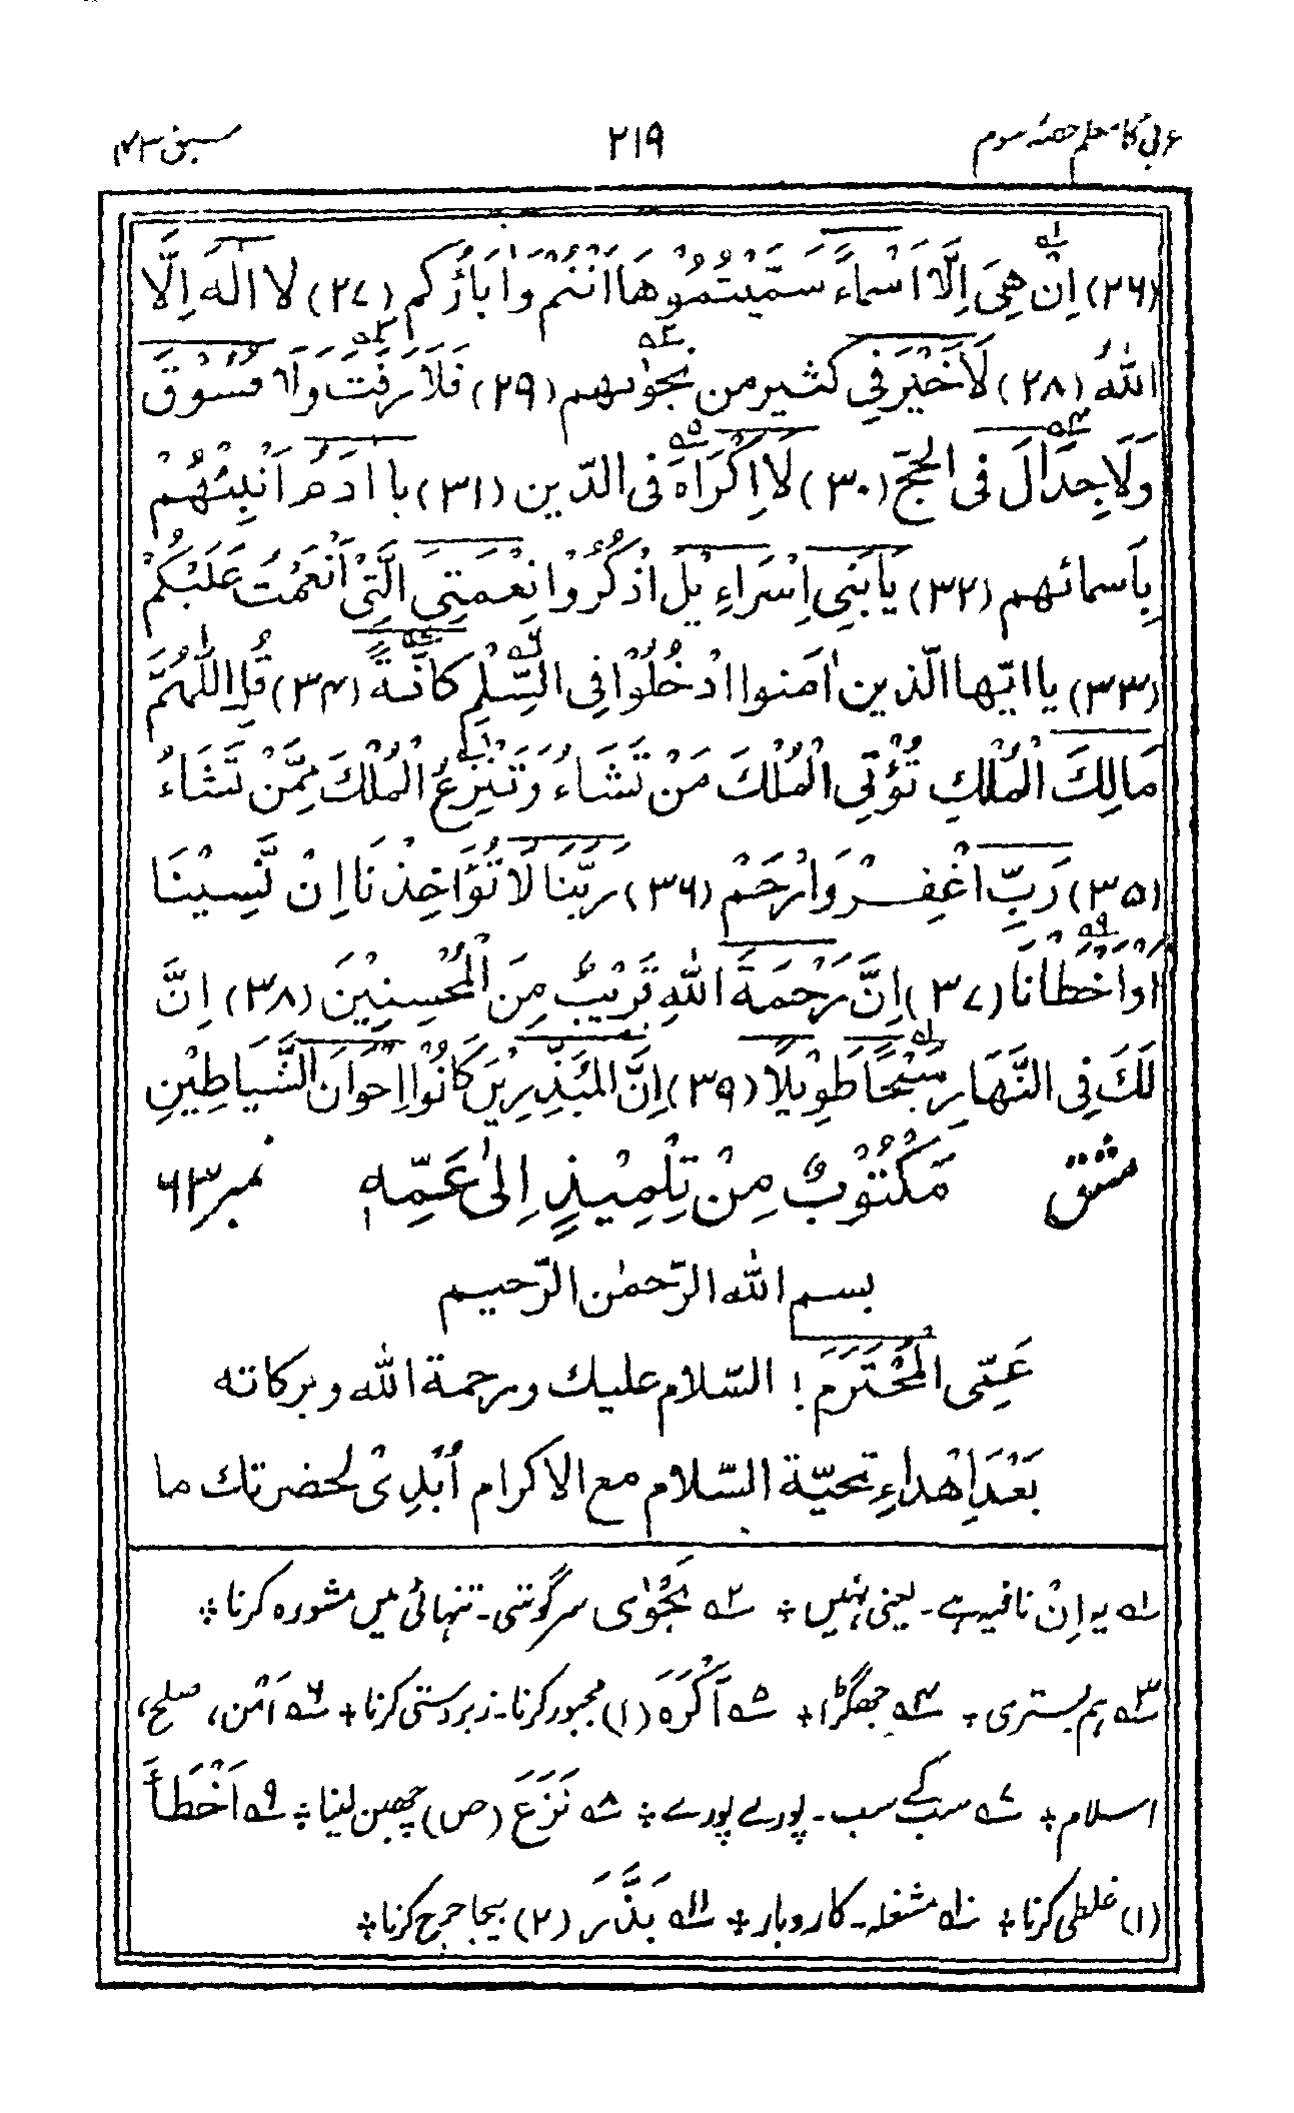 عربی کا معلم حصّہ سوم ۲۱۹ سبق ۴۳
(۲۶) اِنْ هِيَ اِلَّا اَسْمَاءٌ سَمَّيْتُمُوْهَا اَنْتُمْ وَاٰبَاؤُكم (۲۷) لا اله اِلَّا
اللّٰهُ (۲۸) لَاخَيْرَ فِي كثير من نجوٰىهم (۲۹) فَلَا رَفَثَ وَلَا فُسُوْقَ
وَلَا جِدَالَ فى الحَجّ (۳۰) لَا اِكْرَاهَ فى الدّين (۳۱) يا اٰدَمُ اَنْبِئْهُمْ
بِاَسمائهم (۳۲) يَابَنِي اِسْرَاءِيْلَ اذْكُرُوْا نِعْمَتِيَ الَّتِيْ اَنْعَمْتُ عَلَيْكُمْ
(۳۳) يا ايّها الّذين اٰمنوا ادْخُلُوْا فِى السِّلْمِ كافَّةً (۳۴) قُلِ اللّٰهُمَّ
مَالِكَ الْمُلْكِ تُؤْتِي الْمُلْكَ مَنْ تَشَاءُ وَتَنْزِعُ الْمُلْكَ مِمَّنْ تَشَاءُ
(۳۵) رَبِّ اغْفِرْ وَارْحَمْ (۳۶) رَبَّنَا لَا تُؤَاخِذْنَا اِنْ نَّسِيْنَا
اَوْ اَخْطَأْنَا (۳۷) اِنَّ رَحْمَةَ اللّٰهِ قَرِيْبٌ مِنَ الْمُحْسِنِيْنَ (۳۸) اِنَّ
لَكَ فِى النَّهَارِ سَبْحًا طَوِيْلًا (۳۹) اِنَّ المُبَذِّرِيْنَ كَانُوْا اِخْوَانَ الشَّيَاطِيْنِ
مشق مَكْتُوْبٌ مِنْ تِلْمِيْذٍ اِلٰى عَمِّهٖ نمبر ۶۳
بسم الله الرّحمٰن الرّحيم
عَمِّى الْمُحْتَرَم! السّلام عليك ورحمة اللّٰه وبركاته
بَعْدَ اِهْداءِ تحيّة السّلام مع الاكرام اُبْدِىْ لحضرتك ما
۱ یہ اِنْ نافیہ ہے۔ یعنی نہیں ٭ ۲ نَجْوٰی سرگوشی۔ تنہائی میں مشورہ کرنا ٭
۳ ہم بستری ٭ ۴ جھگڑا ٭ ۵ اَكْرَهَ (۱) مجبور کرنا۔ زبردستی کرنا ٭ ۶ اَمْن، صلح،
اسلام ٭ ۷ سب کے سب۔ پورے پورے ٭ ۸ نَزَعَ (ض) چھین لینا ٭ ۹ اَخْطَأَ
(۱) غلطی کرنا ٭ ۱۰ مشغلہ۔ کاروبار ٭ ۱۱ بَذَّرَ (۲) بیجا خرچ کرنا ٭